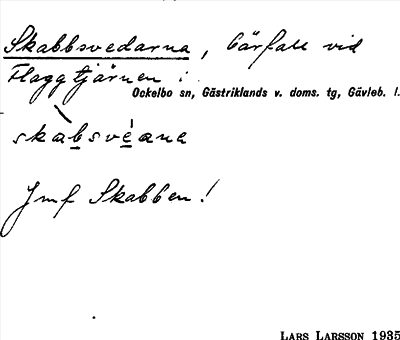 Skabbsvedarna, bärfall vid
Flaggtjärnen i
Ockelbo sn, Gästriklands v. doms. tg, Gävleb. l.
skabsvèana
Jmf Skabben!
LARS LARSSON 1935